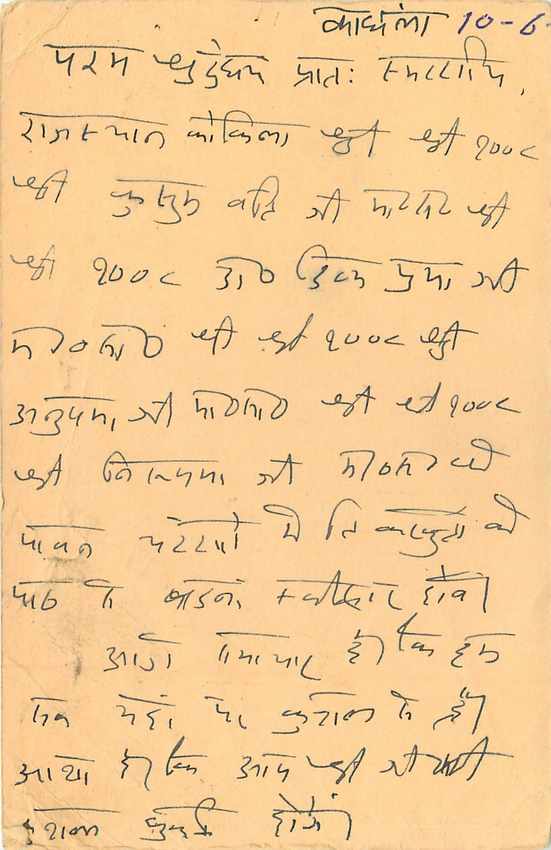 कांधला 10-6-
परम श्रद्धेय प्रातः स्मरणीय,
राजस्थान कोकिला श्री श्री १००८
श्री कुसुम वति जी म०सा० श्री
श्री १००८ डा० दिव्य प्रभा जी
म०सा० श्री श्री १००८ श्री
अनुपमा जी म०सा० श्री श्री १००८
श्री निरुपमा जी म०सा० के
पावन चरणों में ति क्खुतो के
पाठ से वन्दना स्वीकार होवे।
आगे समाचार है कि हम
सब यहां पर कुशल से हैं।
आशा है कि आप श्री जी भी
कुशल पूर्वक होंगे।